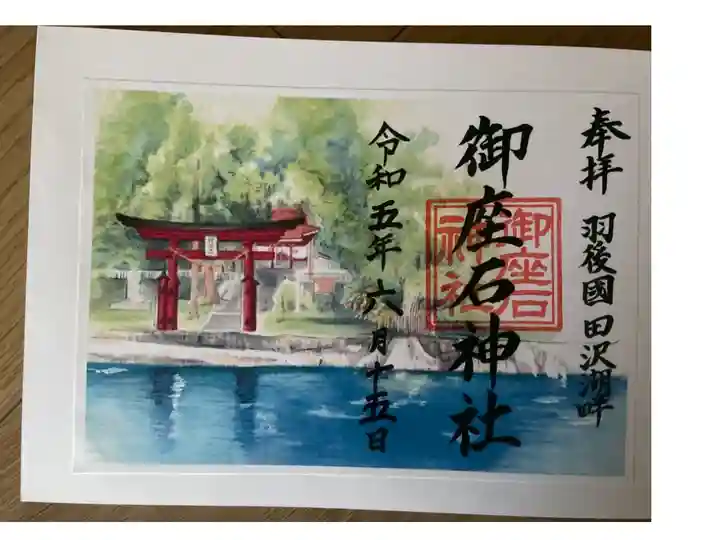 奉拝 羽後國田沢湖畔
御座石神社
御座石
神社
令和五年六月十五日